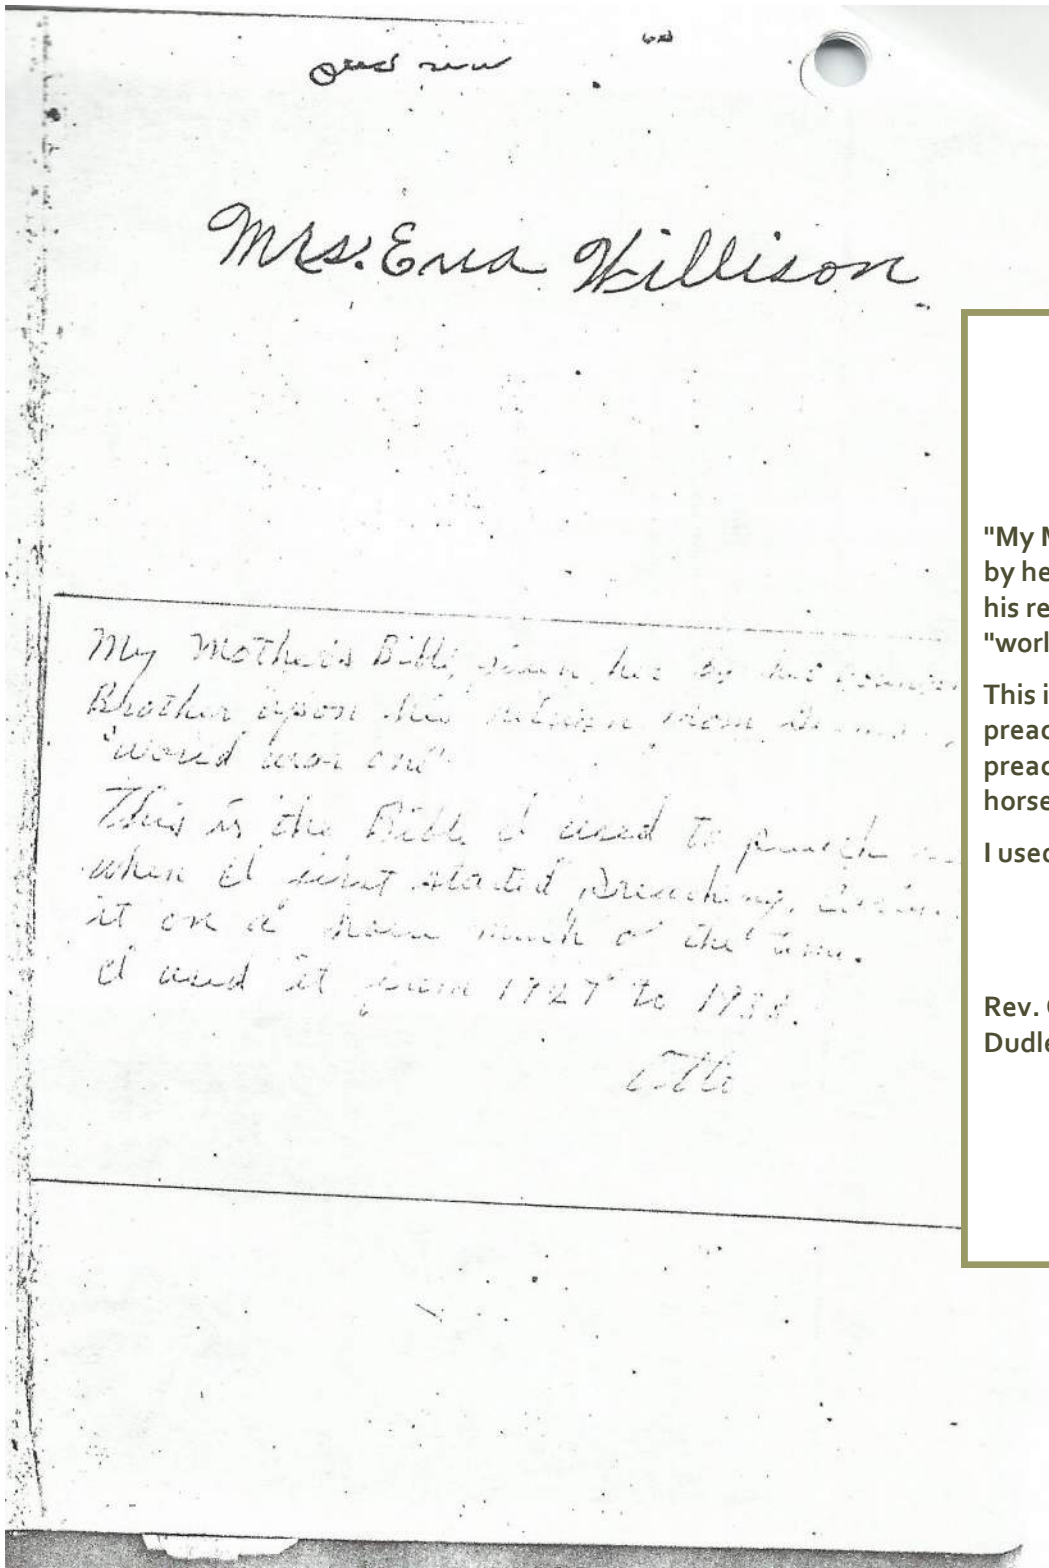 Mrs. Ena Willison
My Mother's Bible, given her by her
Brother upon his return from
"world war one"
This is the Bible I used to preach
when I first started preaching,
it on a horse much of the time.
I used it from 1927 to 1938.
"My M
by he
his re
"worl
This i
preac
preac
horse
I used
Rev.
Dudle